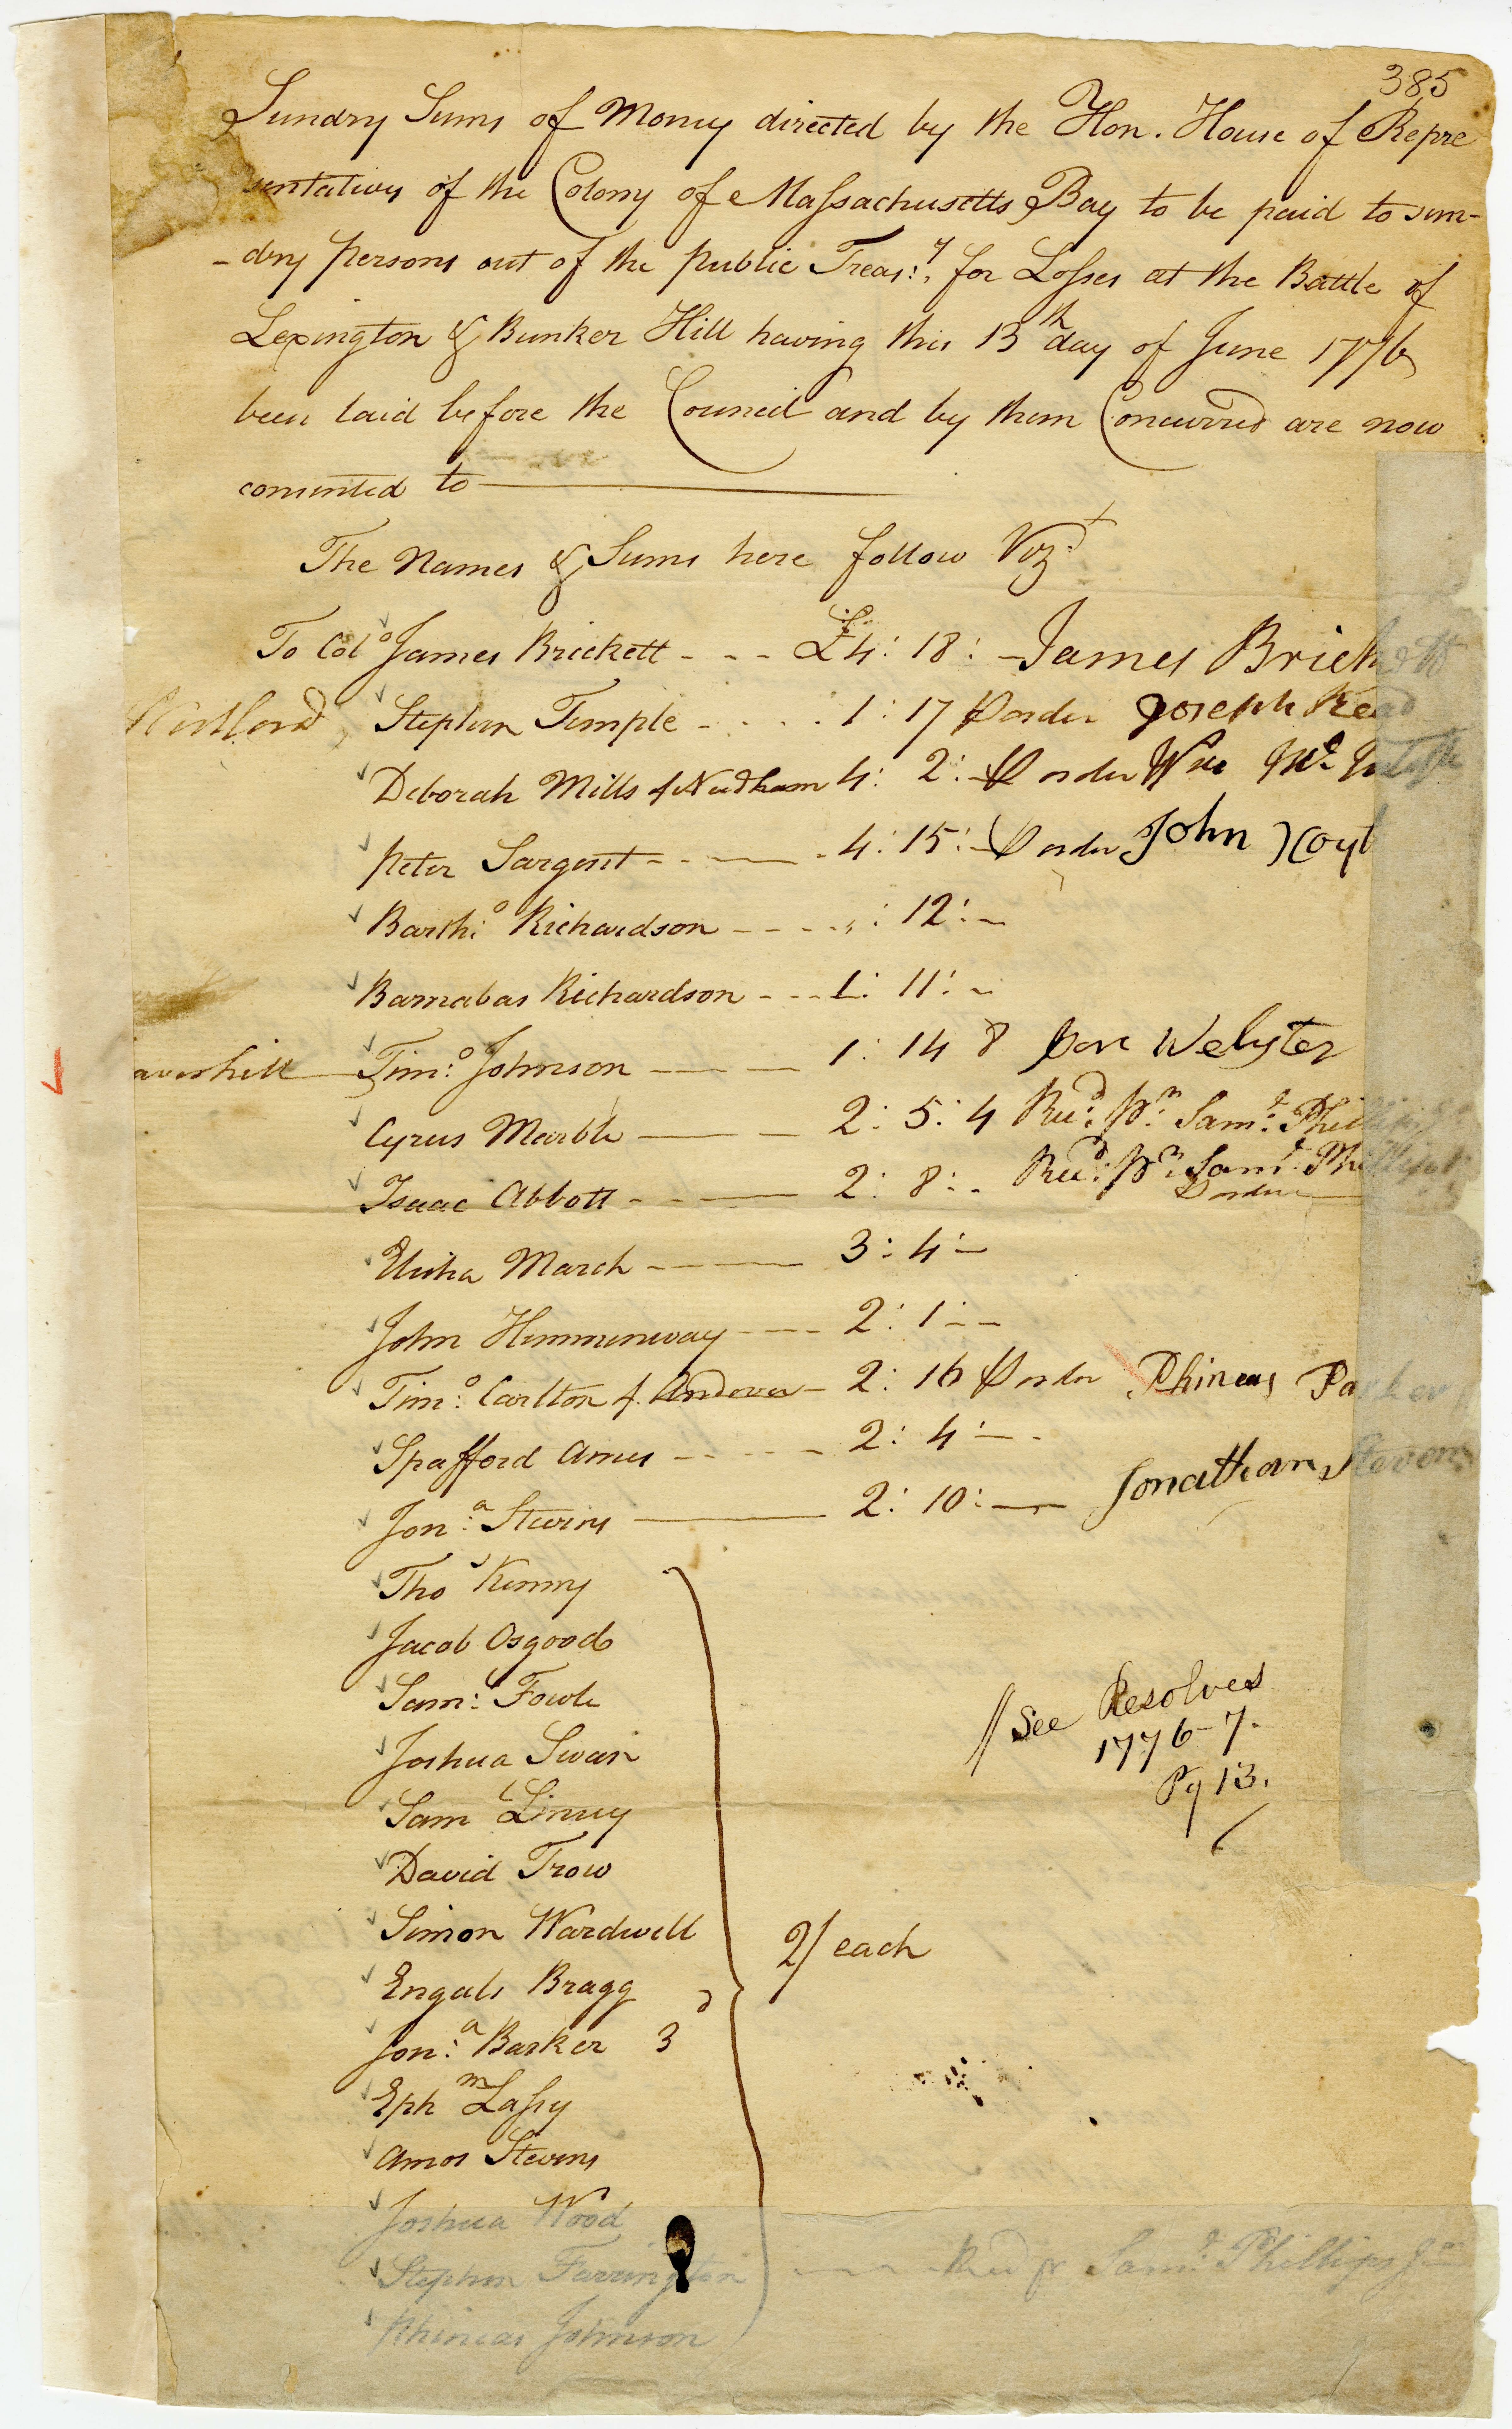 385
Sundry Sums of Money directed by the Hon. House of Repre
sentatives of the Colony of Massachusetts Bay to be paid to sun-
-dry persons out of the public Treas:y, for Losses at the Battle of
Lexington & Bunker Hill having this 13th day of June 1776
been laid before the Council and by them Concurred are now
consented to
The Names & Sums here follow Vizt
To Colo James Brickett - - - £4: 18: - James Brickett
Westford, Stephen Temple - . . . 1: 17 P order Joseph Read
Deborah Mills of Needham 4: 2: - P order Wm
Peter Sargent - - - - 4: 15: - P order John
Bartho Richardson - - - - : 12: -
Barnabas Richardson - - - 1: 11: -
averhill Timo: Johnson - - - 1: 14 8 Webster
Cyrus Marble - - 2: 5: 4 Recd: pr Saml: Phillips Jr
Isaac Abbott - - - 2: 8: - Recd: pr Saml Phillips Jr
P order
Elisha March - - - 3: 4: -
John Hemmenway - - - 2: 1: - -
Timo: Carlton of Andover - 2: 16 P order Phineas Parker
Spafford Ames - - - - - 2: 4: - -
Jona: Stevens - 2: 10: - Jonathan Stevens
Thos Kenny
Jacob Osgood
Saml: Fowle
Joshua Swan
Saml
David Trow
Simon Wardwell
Engals Bragg
Jona: Barker 3d
Ephm Lassy
Amos Stevens
Joshua Wood
Stephen Farrington - - - Recd pr Saml: Phillips Jr
Phineas Johnson
2/ each
// See Resolves
1776-7.
Pg 13.